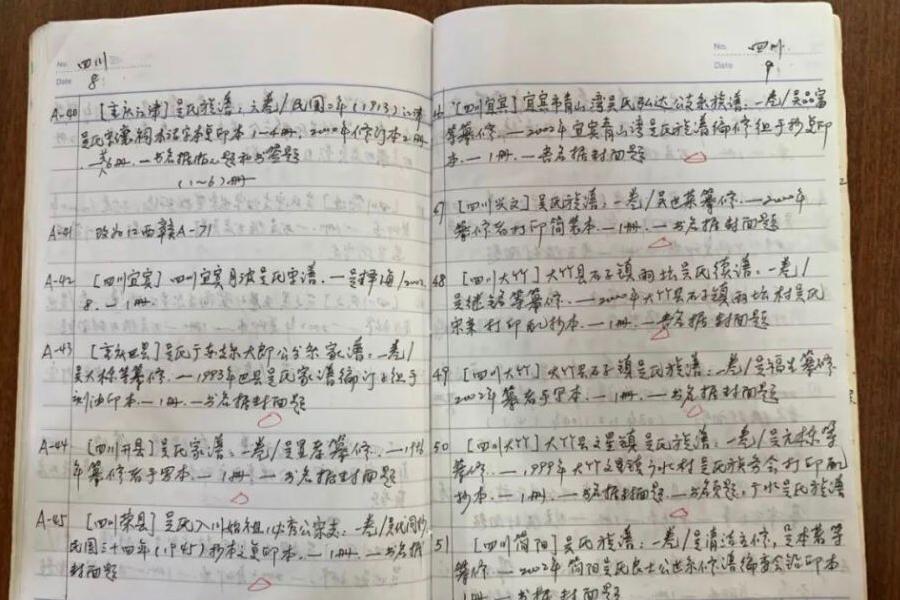 No. 四川
Date 8
A-40 [重庆江津]吴氏族谱：六卷/民国二年(1913)江津
吴氏宗祠木活字本复印本1-4册．2000年修订本2册．
一共6册．一书名据版心题和书签题
(1~6)册
A-41 改为江西赣A-71
A-42 [四川宜宾]四川宜宾月波吴氏宗谱．一吴择海/2002.
8．一1册．
A-43 [重庆巴县]吴氏太郎公分系家谱：一卷/
吴大栋等纂修．一1993年巴县吴氏家谱编订小组手
刻油印本．一1册．一书名据封面题
A-44 [四川开县]吴氏家谱：一卷/吴星孝纂修．一19
年纂修者手写本．一1册．一书名据封面题
A-45 [四川荣县]吴氏入川始祖必秀公宗支：一卷/吴
民国三十四年(1945)抄本之复印本．一1册．一书名据
封面题
No. 四川
Date 9
[四川宜宾]宜宾市青山湾吴氏弘达公支系族谱：一卷/吴品富
等纂修．一2002年宜宾青山湾吴氏族谱编修组手抄复印
本．一1册．一书名据封面题
47 [四川兴文]吴氏族谱：一卷/吴世英纂修．一2000年
纂修者打印简装本．一1册．一书名据封面题
48 [四川大竹]大竹县石子镇吴氏续谱：一卷/
吴继锡等纂修．一2000年大竹县石子镇村吴氏
宗亲打印配抄本．一1册．一书名据封面题
49 [四川大竹]大竹县石子镇吴氏族谱：一卷/吴福生纂修
2002年纂者手写本．一1册．一书名据封面题
50 [四川大竹]大竹县文星镇吴氏族谱：一卷/吴元栋等
纂修．一1999年大竹文星镇方水村吴氏族务会打印配
抄本．一1册．一书名据封面题．一书名页题：方水吴氏族谱
51 [四川简阳]吴氏族谱：一卷/吴清远主修，吴本著等
纂修．一2002年简阳吴氏良士公世系修谱编委会铅印本
一1册．一书据封面题